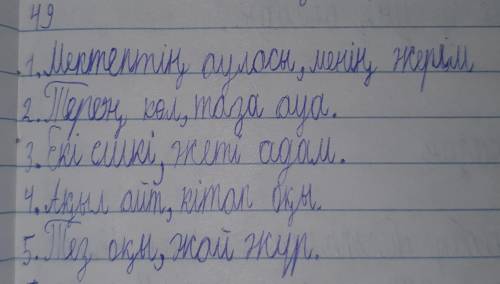 49
1. Мектептің ауласы, менің жерім
2. Терең көл, таза ауа.
3. Екі ешкі, жеті адам.
4. Ақыл айт, кітап оқы.
5. Тез оқы, жай жүр.